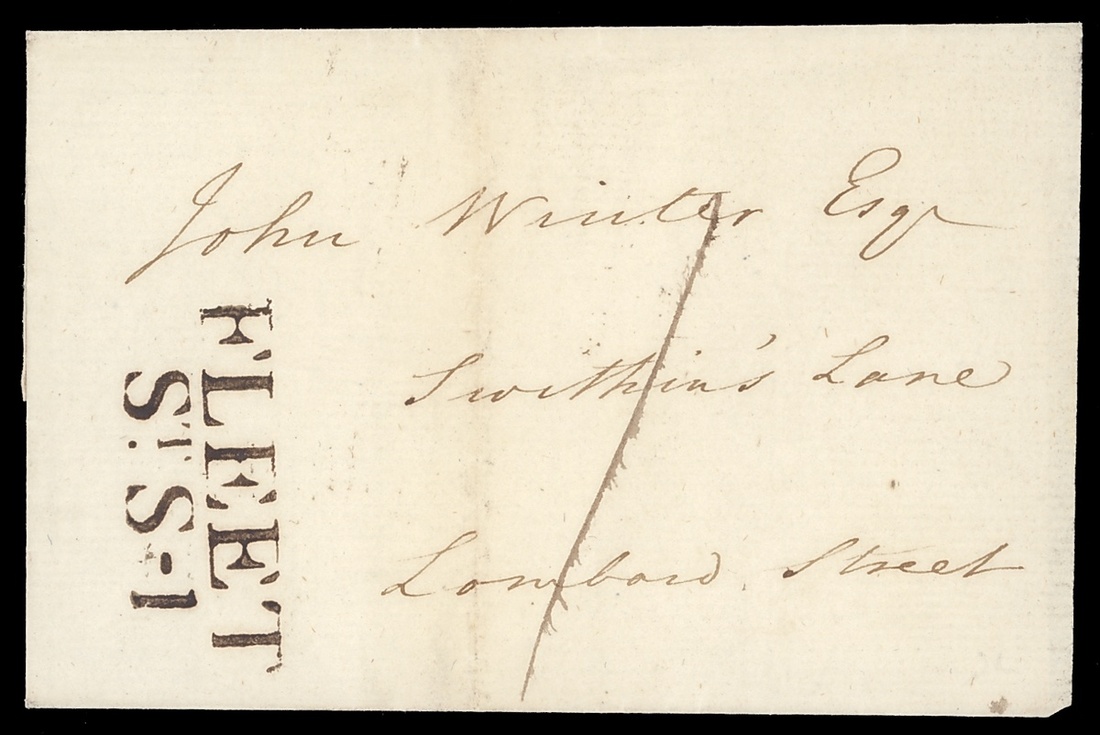 John Winter Esqr
Swithin's Lane
Lombard Street
1
FLEET
St. S-1